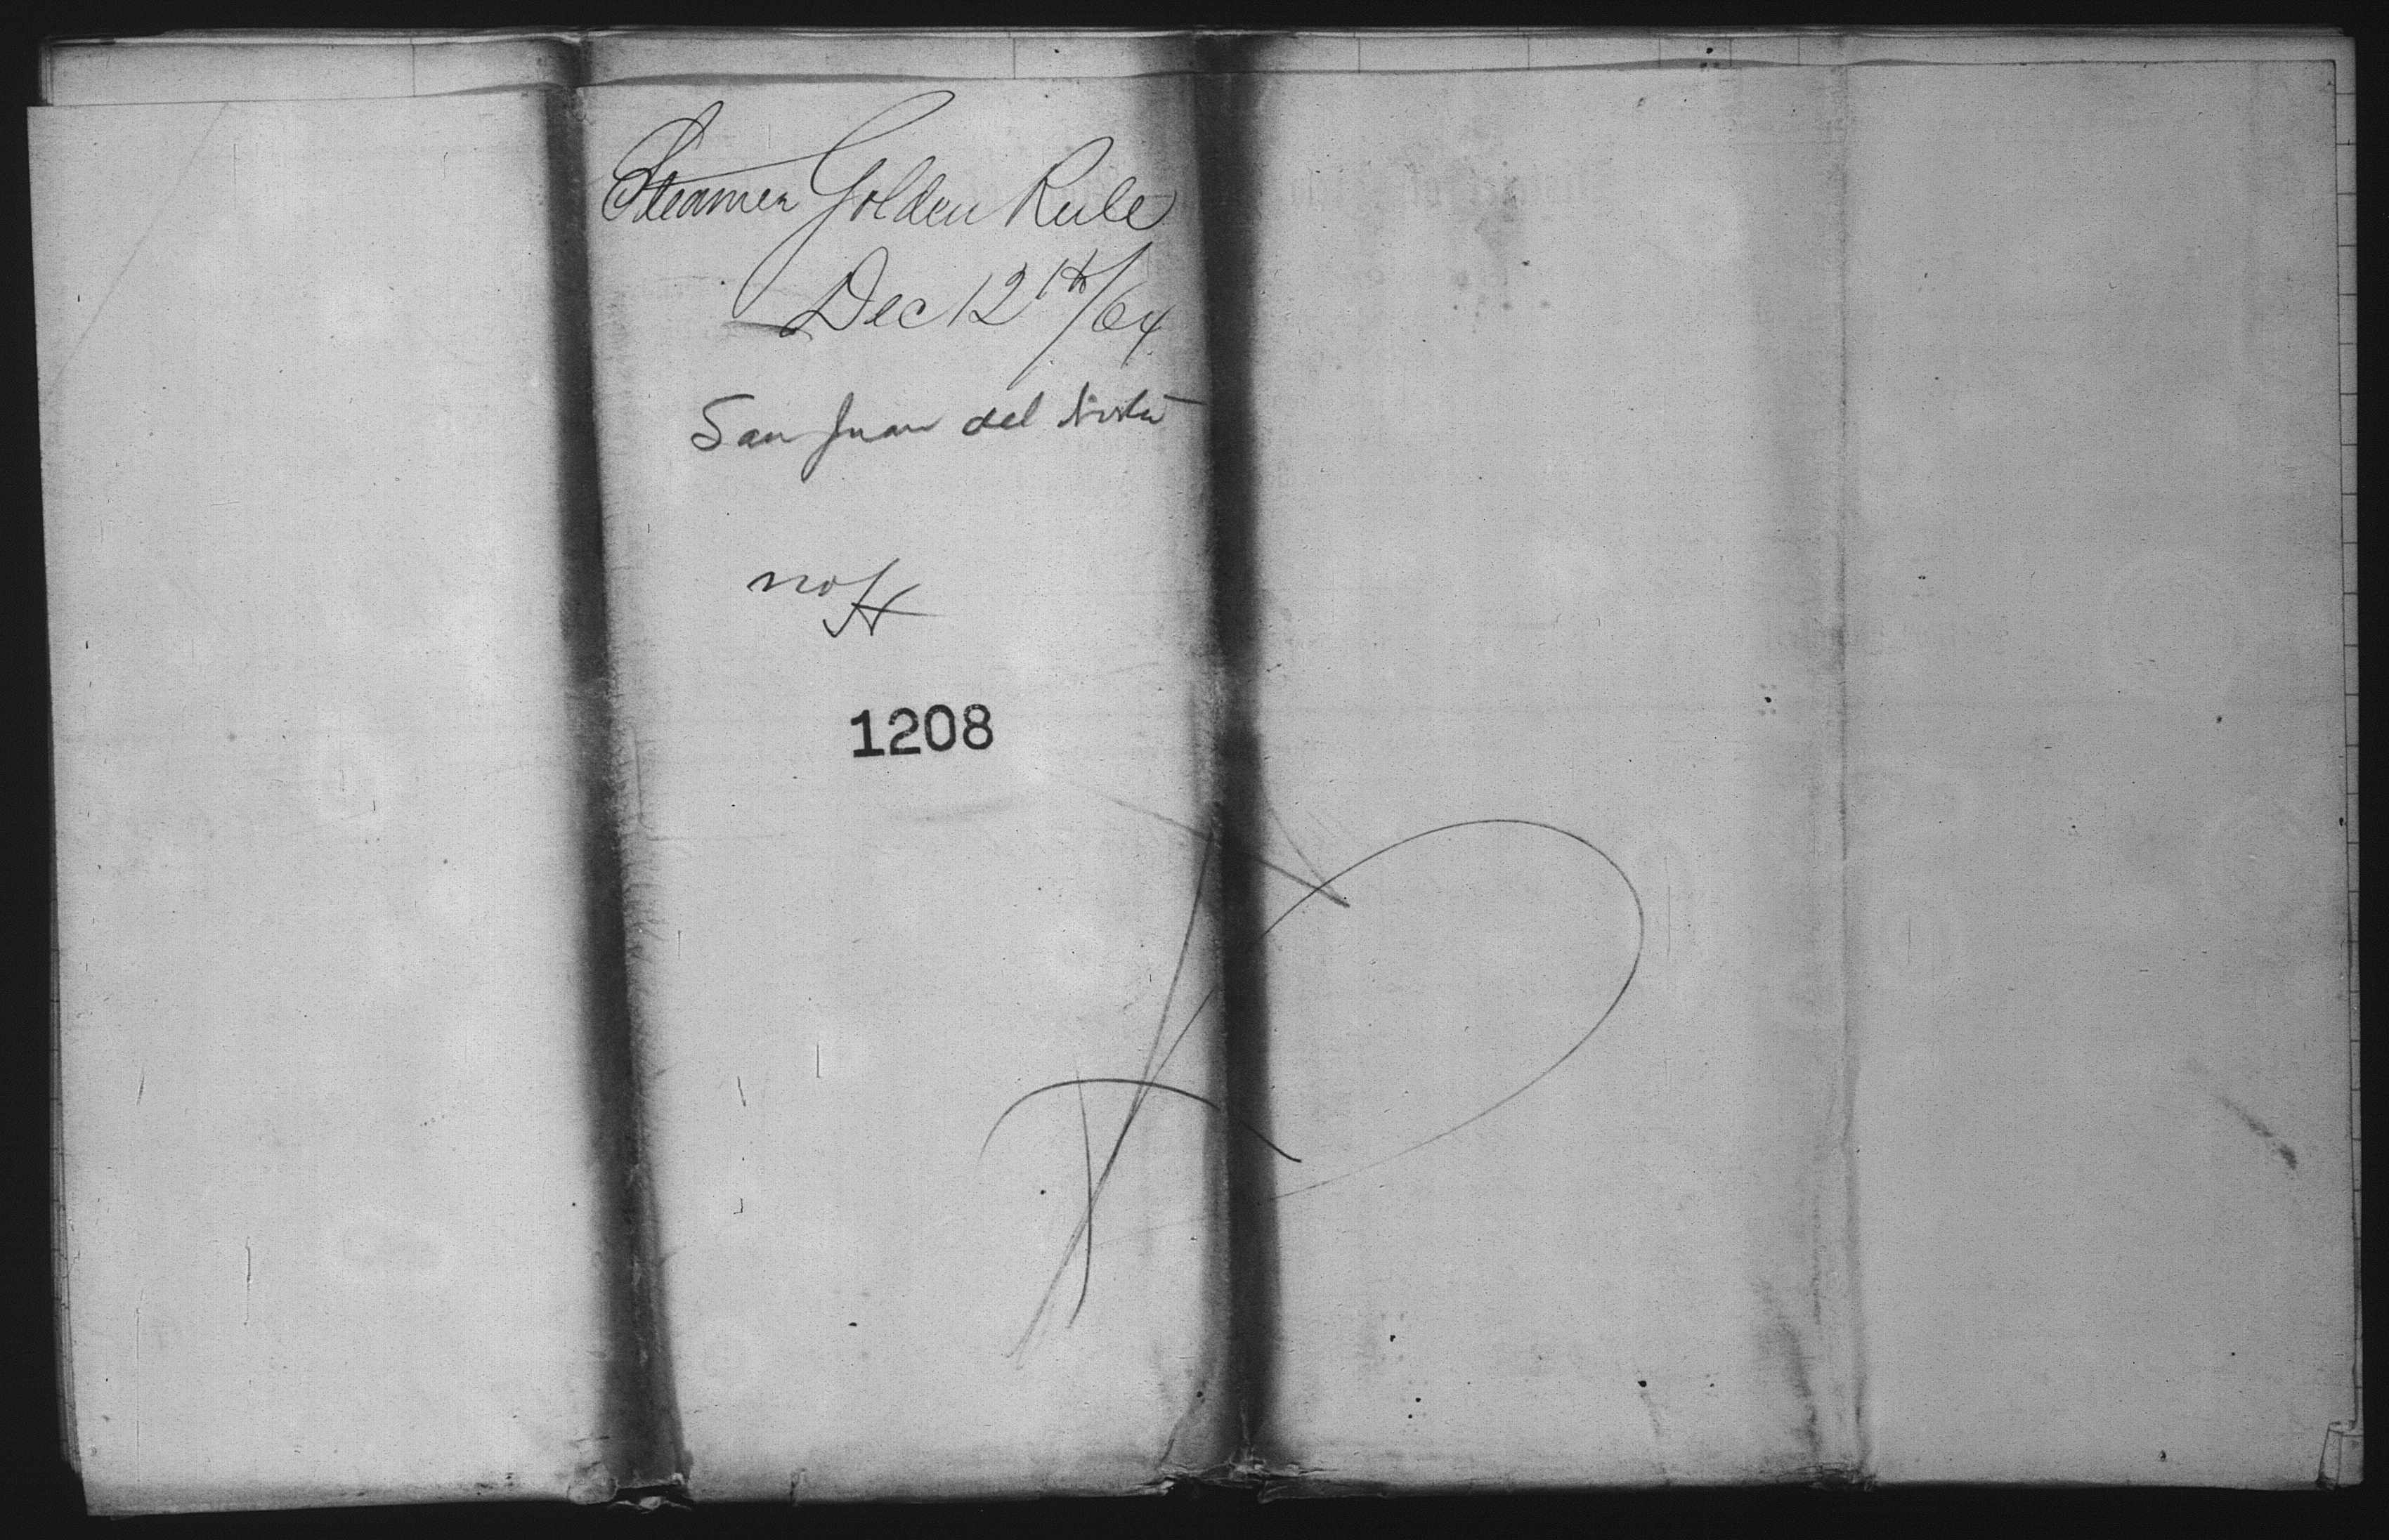 Steamer Golden Rule
Dec 12th/64
San Juan del Norte
no
1208